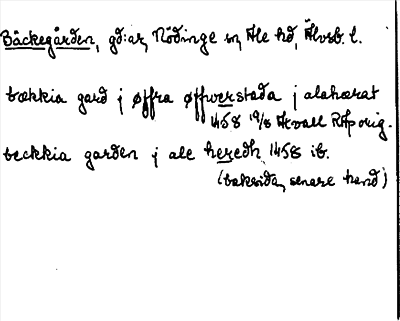 Bäckegården, gd:ar, Nödinge sn, Ale hd, Älvsb. l.
bækkia gard j øffra øffuerstada j alahærat
1458 19/8 Kvall RAp orig.
beckkia garden j ale heredh 1458 ib.
(baksida, senare hand)